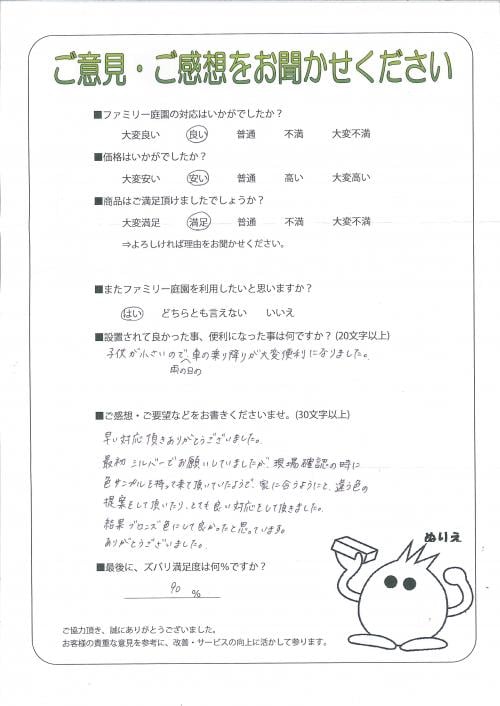 ご意見・ご感想をお聞かせください
■ファミリー庭園の対応はいかがでしたか？
大変良い 良い 普通 不満 大変不満
■価格はいかがでしたか？
大変安い 安い 普通 高い 大変高い
■商品はご満足頂けましたでしょうか？
大変満足 満足 普通 不満 大変不満
⇒よろしければ理由をお聞かせください。
■またファミリー庭園を利用したいと思いますか？
はい どちらとも言えない いいえ
■設置されて良かった事、便利になった事は何ですか？(20文字以上)
子供が小さいので、車の乗り降りが大変便利になりました。
雨の日の
■ご感想・ご要望などをお書きくださいませ。(30文字以上)
早い対応頂きありがとうございました。
最初シルバーでお願いしていましたが、現場確認の時に
色サンプルを持って来て頂いていたようで、家に合うようにと、違う色の
提案をして頂いたり、とても良い対応をして頂きました。
結果ブロンズ色にして良かったと思っています。
ありがとうございました。
■最後に、ズバリ満足度は何％ですか？
90 ％
ぬりえ
ご協力頂き、誠にありがとうございました。
お客様の貴重な意見を参考に、改善・サービスの向上に活かして参ります。